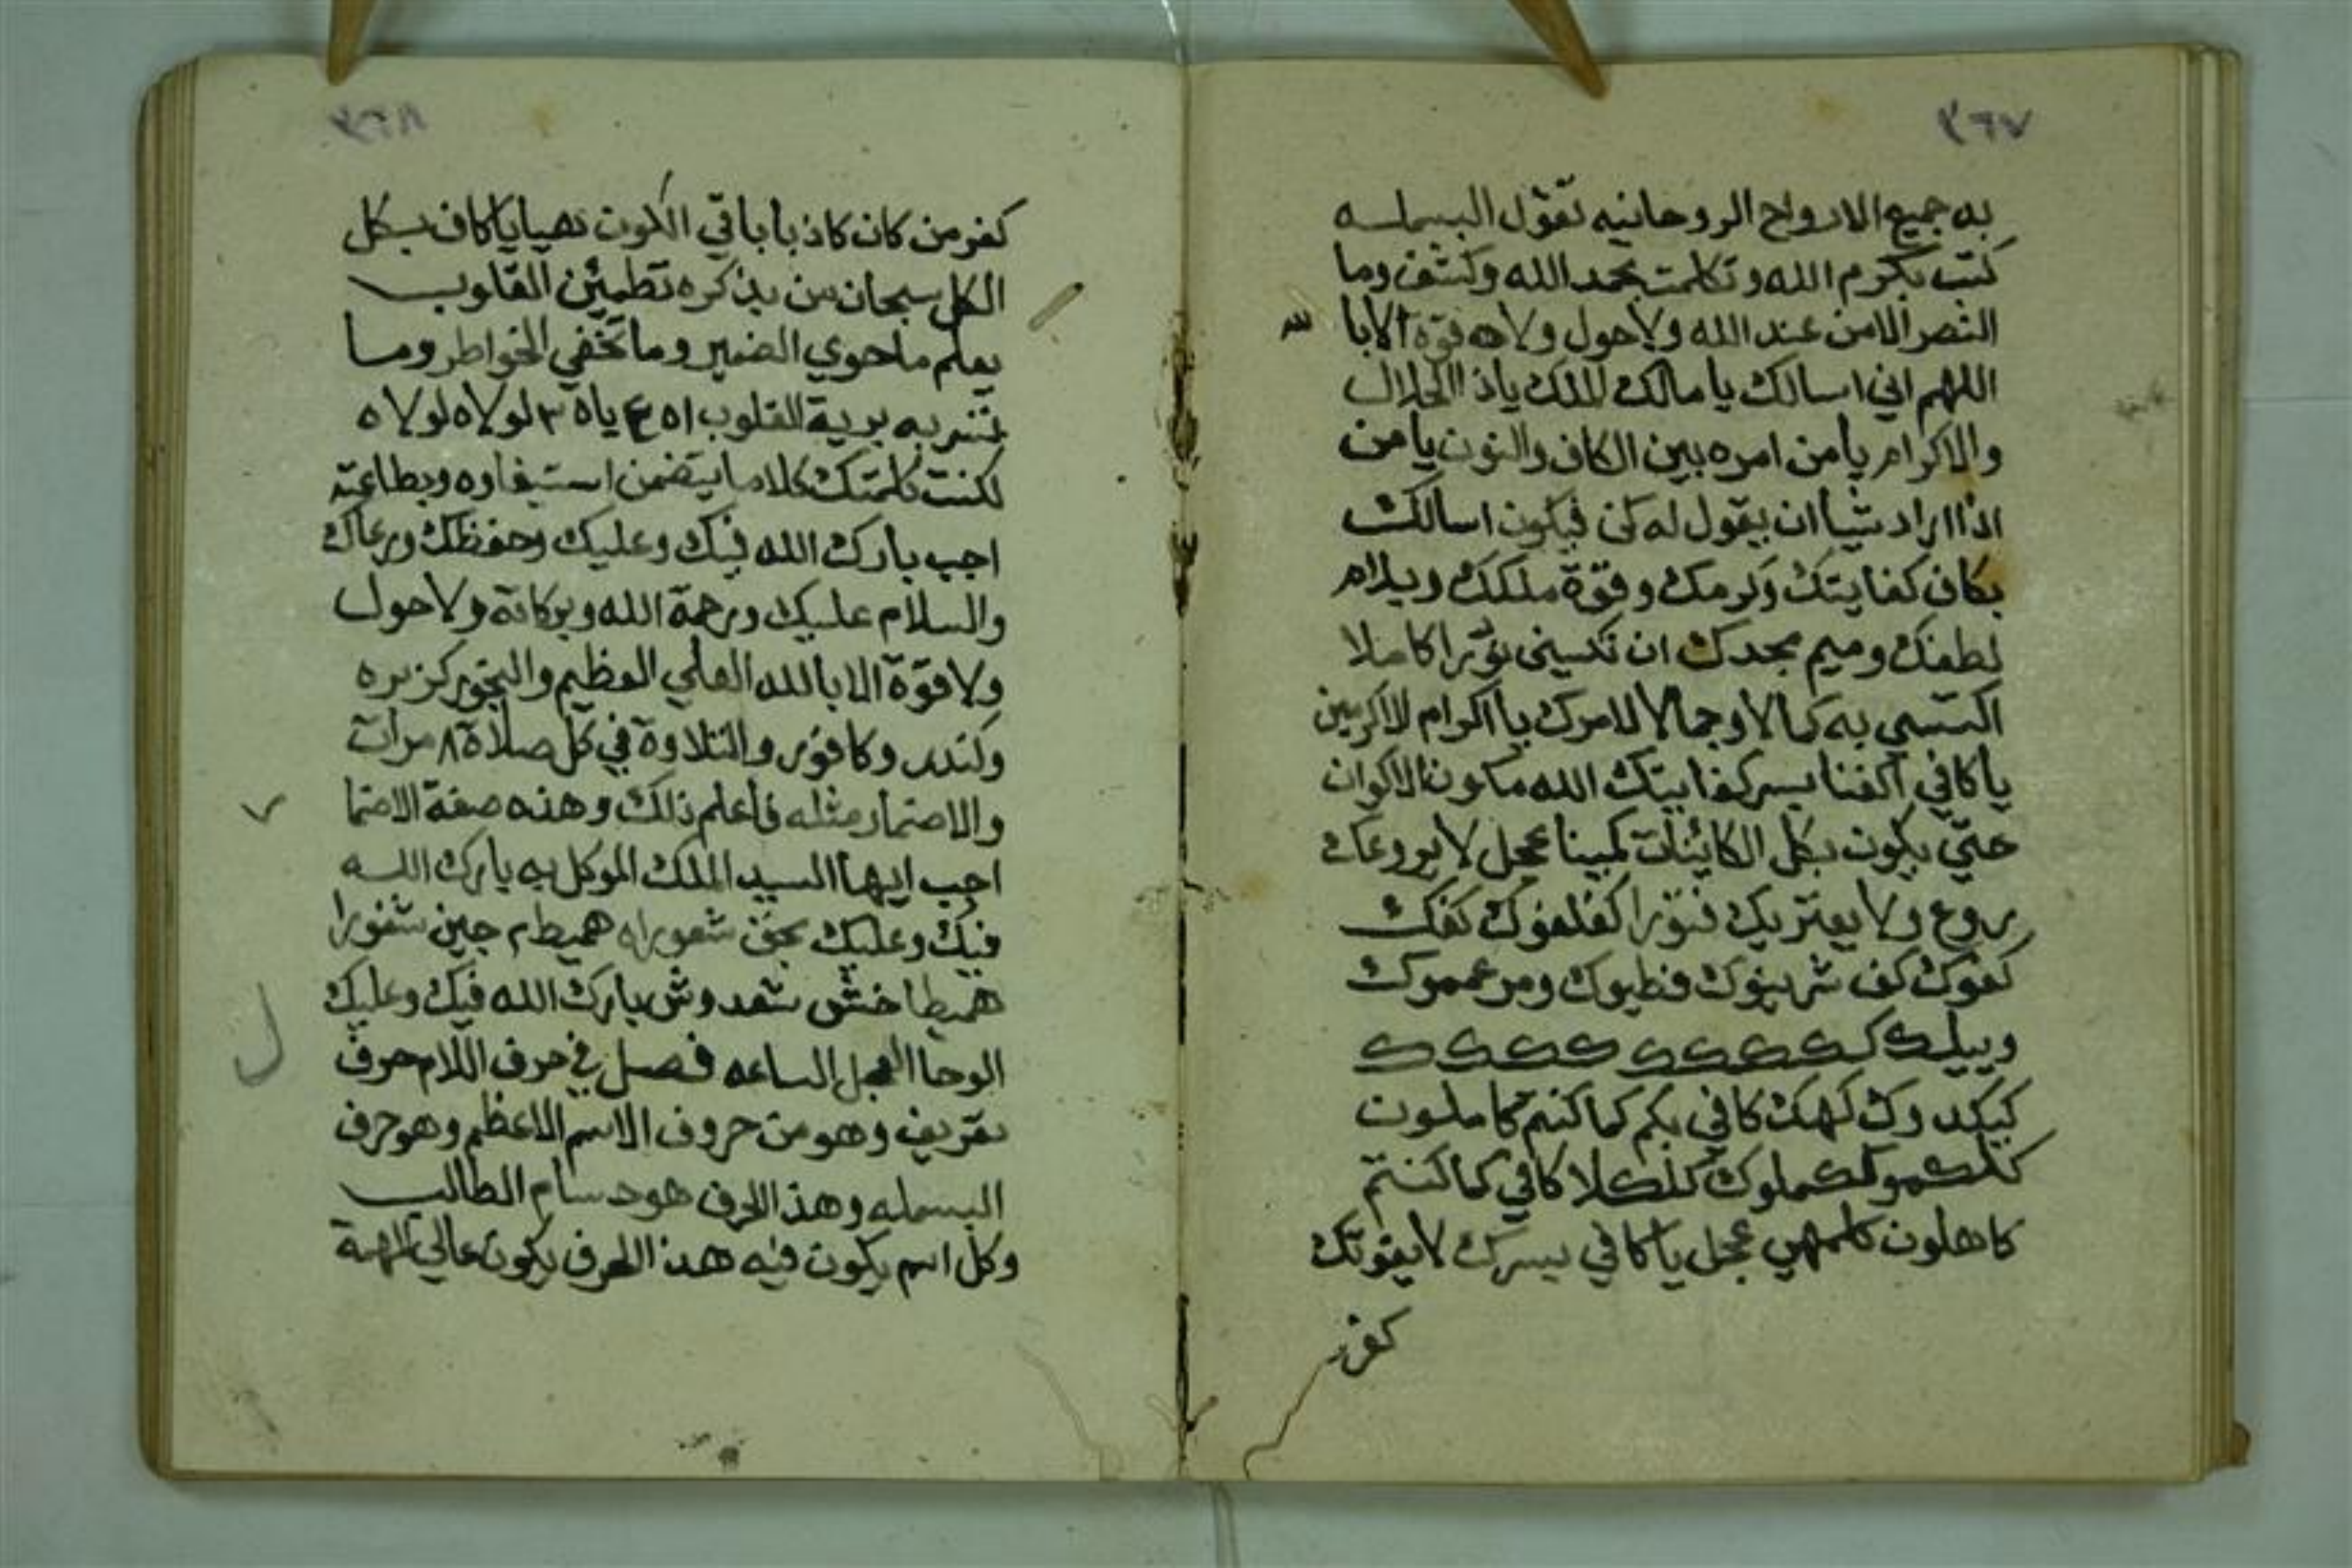 ٣٦٧
به جميع الارواح الروحانيه تقول البسمله
كتب بكرم الله وتكلمت بحمد الله وكشف وما
النصر الا من عند الله ولا حول ولا قوة الا با لله
اللهم اني اسالك يا مالك الملك ياذا الجلال
والاكرام يا من امره بين الكاف والنون يا من
اذا اراد شيا ان يقول له كن فيكون اسالك
بكاف كفايتك وكرمك وقوة ملكك وبلام
لطفك وميم مجدك ان تكسيني نورا كاملا
اكتسي به كمالا وجمالا لامرك يا اكرام الاكرمين
يا كافي اكفنا بسر كفايتك الله مكون الاكوان
حتي يكون بكل الكائنات عجل لا يروعك
روع ولا يعتريك فتورا كفلفوك كفك
كفوك كف فطيوك
وييلك ككككككككك
كيكد وك كهك كافي بكم كما كنتم كاملون
كلكلا كافي كما كنتم
كاهلون عجل يا كافي بسرك لا يفوتك
كفر
٣٦٨
كفر من كان كاذبا باقي الكون يا كاف بكل
الكل سبحان من بذكره تطمئن القلوب
يعلم ما حوي الضمير وما تخفي الخواطر وما
به برية القلوب ياه ٣ لولاه لولاه
لكنت كلمتك كلاما يتضمن وبطاعته
اجب بارك الله فيك وعليك وحفظك ورعاك
والسلام عليك ورحمة الله وبركاتة ولا حول
ولا قوة الا بالله العلي العظيم والبخور كزبره
وكندر وكافور والتلاوة في كل صلاة ٨ مرات
والاضمار مثله فاعلم ذلك وهذه صفة الاضما
اجب ايها السيد الملك الموكل به بارك الله
فيك وعليك بحق
بارك الله فيك وعليك
الوحا العجل الساعه فصل في حرف اللام حرف
تعريف وهو من حروف الاسم الاعظم وهو حرف
البسمله وهذا الحرف هو حسام الطالب
وكل اسم يكون فيه هذا الحرف يكون عالي الهمة
ل